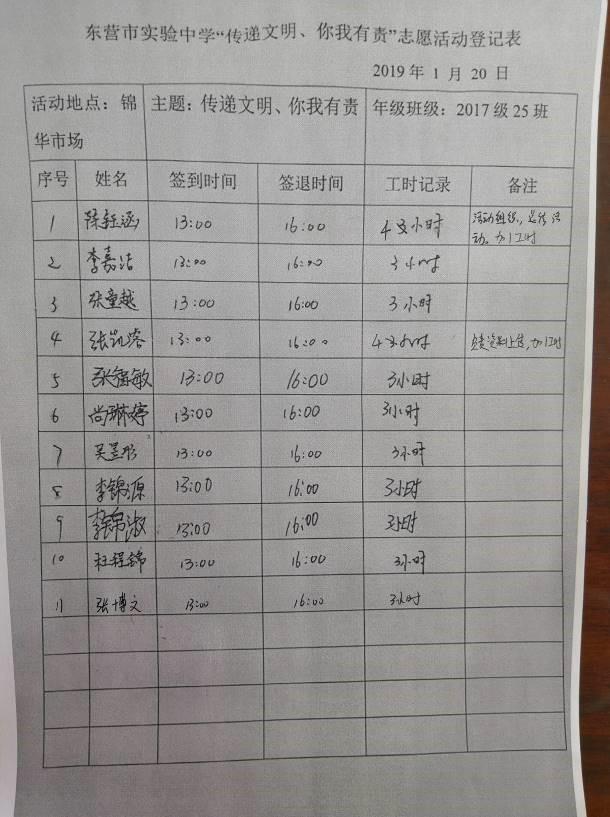 东营市实验中学“传递文明、你我有责”志愿活动登记表
2019 年 1 月 20 日
活动地点：锦华市场 主题：传递文明、你我有责 年级班级：2017 级 25 班
序号 姓名 签到时间 签退时间 工时记录 备注
1 陈钰涵 13:00 16:00 4小时 活动组织，总结活动。加1工时
2 李嘉洁 13:00 16:00 3小时
3 张童越 13:00 16:00 3小时
4 张凯容 13:00 16:00 4小时 负责资料上传，加1工时
5 张蕴敏 13:00 16:00 3小时
6 尚琳婷 13:00 16:00 3小时
7 吴昱彤 13:00 16:00 3小时
8 李锦源 13:00 16:00 3小时
9 李锦淑 13:00 16:00 3小时
10 杜程锦 13:00 16:00 3小时
11 张博文 13:00 16:00 3小时